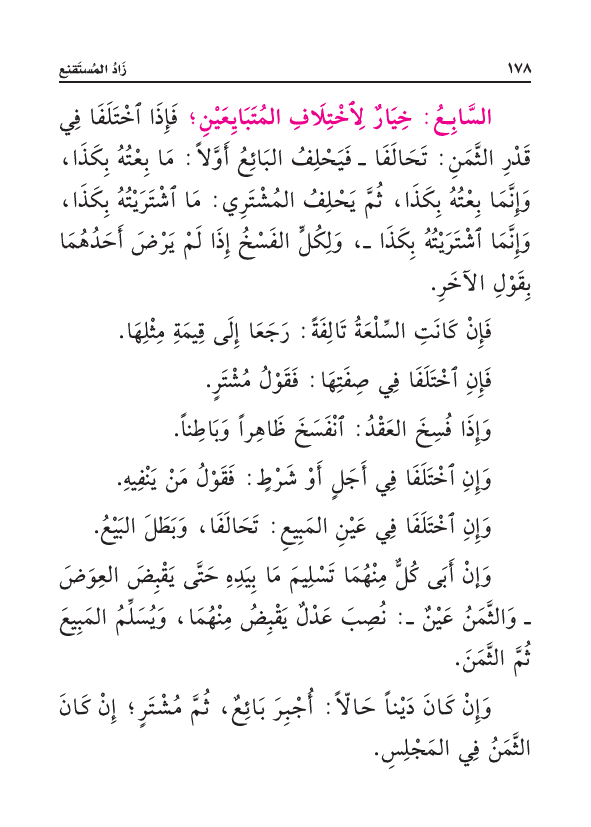 ١٧٨ زَادُ المُسْتَقْنِعِ
السَّابِعُ: خِيَارٌ لِٱخْتِلَافِ المُتَبَايِعَيْنِ؛ فَإِذَا ٱخْتَلَفَا فِي
قَدْرِ الثَّمَنِ: تَحَالَفَا ـ فَيَحْلِفُ البَائِعُ أَوَّلاً: مَا بِعْتُهُ بِكَذَا،
وَإِنَّمَا بِعْتُهُ بِكَذَا، ثُمَّ يَحْلِفُ المُشْتَرِي: مَا ٱشْتَرَيْتُهُ بِكَذَا،
وَإِنَّمَا ٱشْتَرَيْتُهُ بِكَذَا ـ، وَلِكُلٍّ الفَسْخُ إِذَا لَمْ يَرْضَ أَحَدُهُمَا
بِقَوْلِ الآخَرِ.
فَإِنْ كَانَتِ السِّلْعَةُ تَالِفَةً: رَجَعَا إِلَى قِيمَةِ مِثْلِهَا.
فَإِنِ ٱخْتَلَفَا فِي صِفَتِهَا: فَقَوْلُ مُشْتَرٍ.
وَإِذَا فُسِخَ العَقْدُ: ٱنْفَسَخَ ظَاهِراً وَبَاطِناً.
وَإِنِ ٱخْتَلَفَا فِي أَجَلٍ أَوْ شَرْطٍ: فَقَوْلُ مَنْ يَنْفِيهِ.
وَإِنِ ٱخْتَلَفَا فِي عَيْنِ المَبِيعِ: تَحَالَفَا، وَبَطَلَ البَيْعُ.
وَإنْ أَبَى كُلٌّ مِنْهُمَا تَسْلِيمَ مَا بِيَدِهِ حَتَّى يَقْبِضَ العِوَضَ
ـ وَالثَّمَنُ عَيْنٌ ـ: نُصِبَ عَدْلٌ يَقْبِضُ مِنْهُمَا، وَيُسَلِّمُ المَبِيعَ
ثُمَّ الثَّمَنَ.
وَإِنْ كَانَ دَيْناً حَالّاً: أُجْبِرَ بَائِعٌ، ثُمَّ مُشْتَرٍ؛ إِنْ كَانَ
الثَّمَنُ فِي المَجْلِسِ.